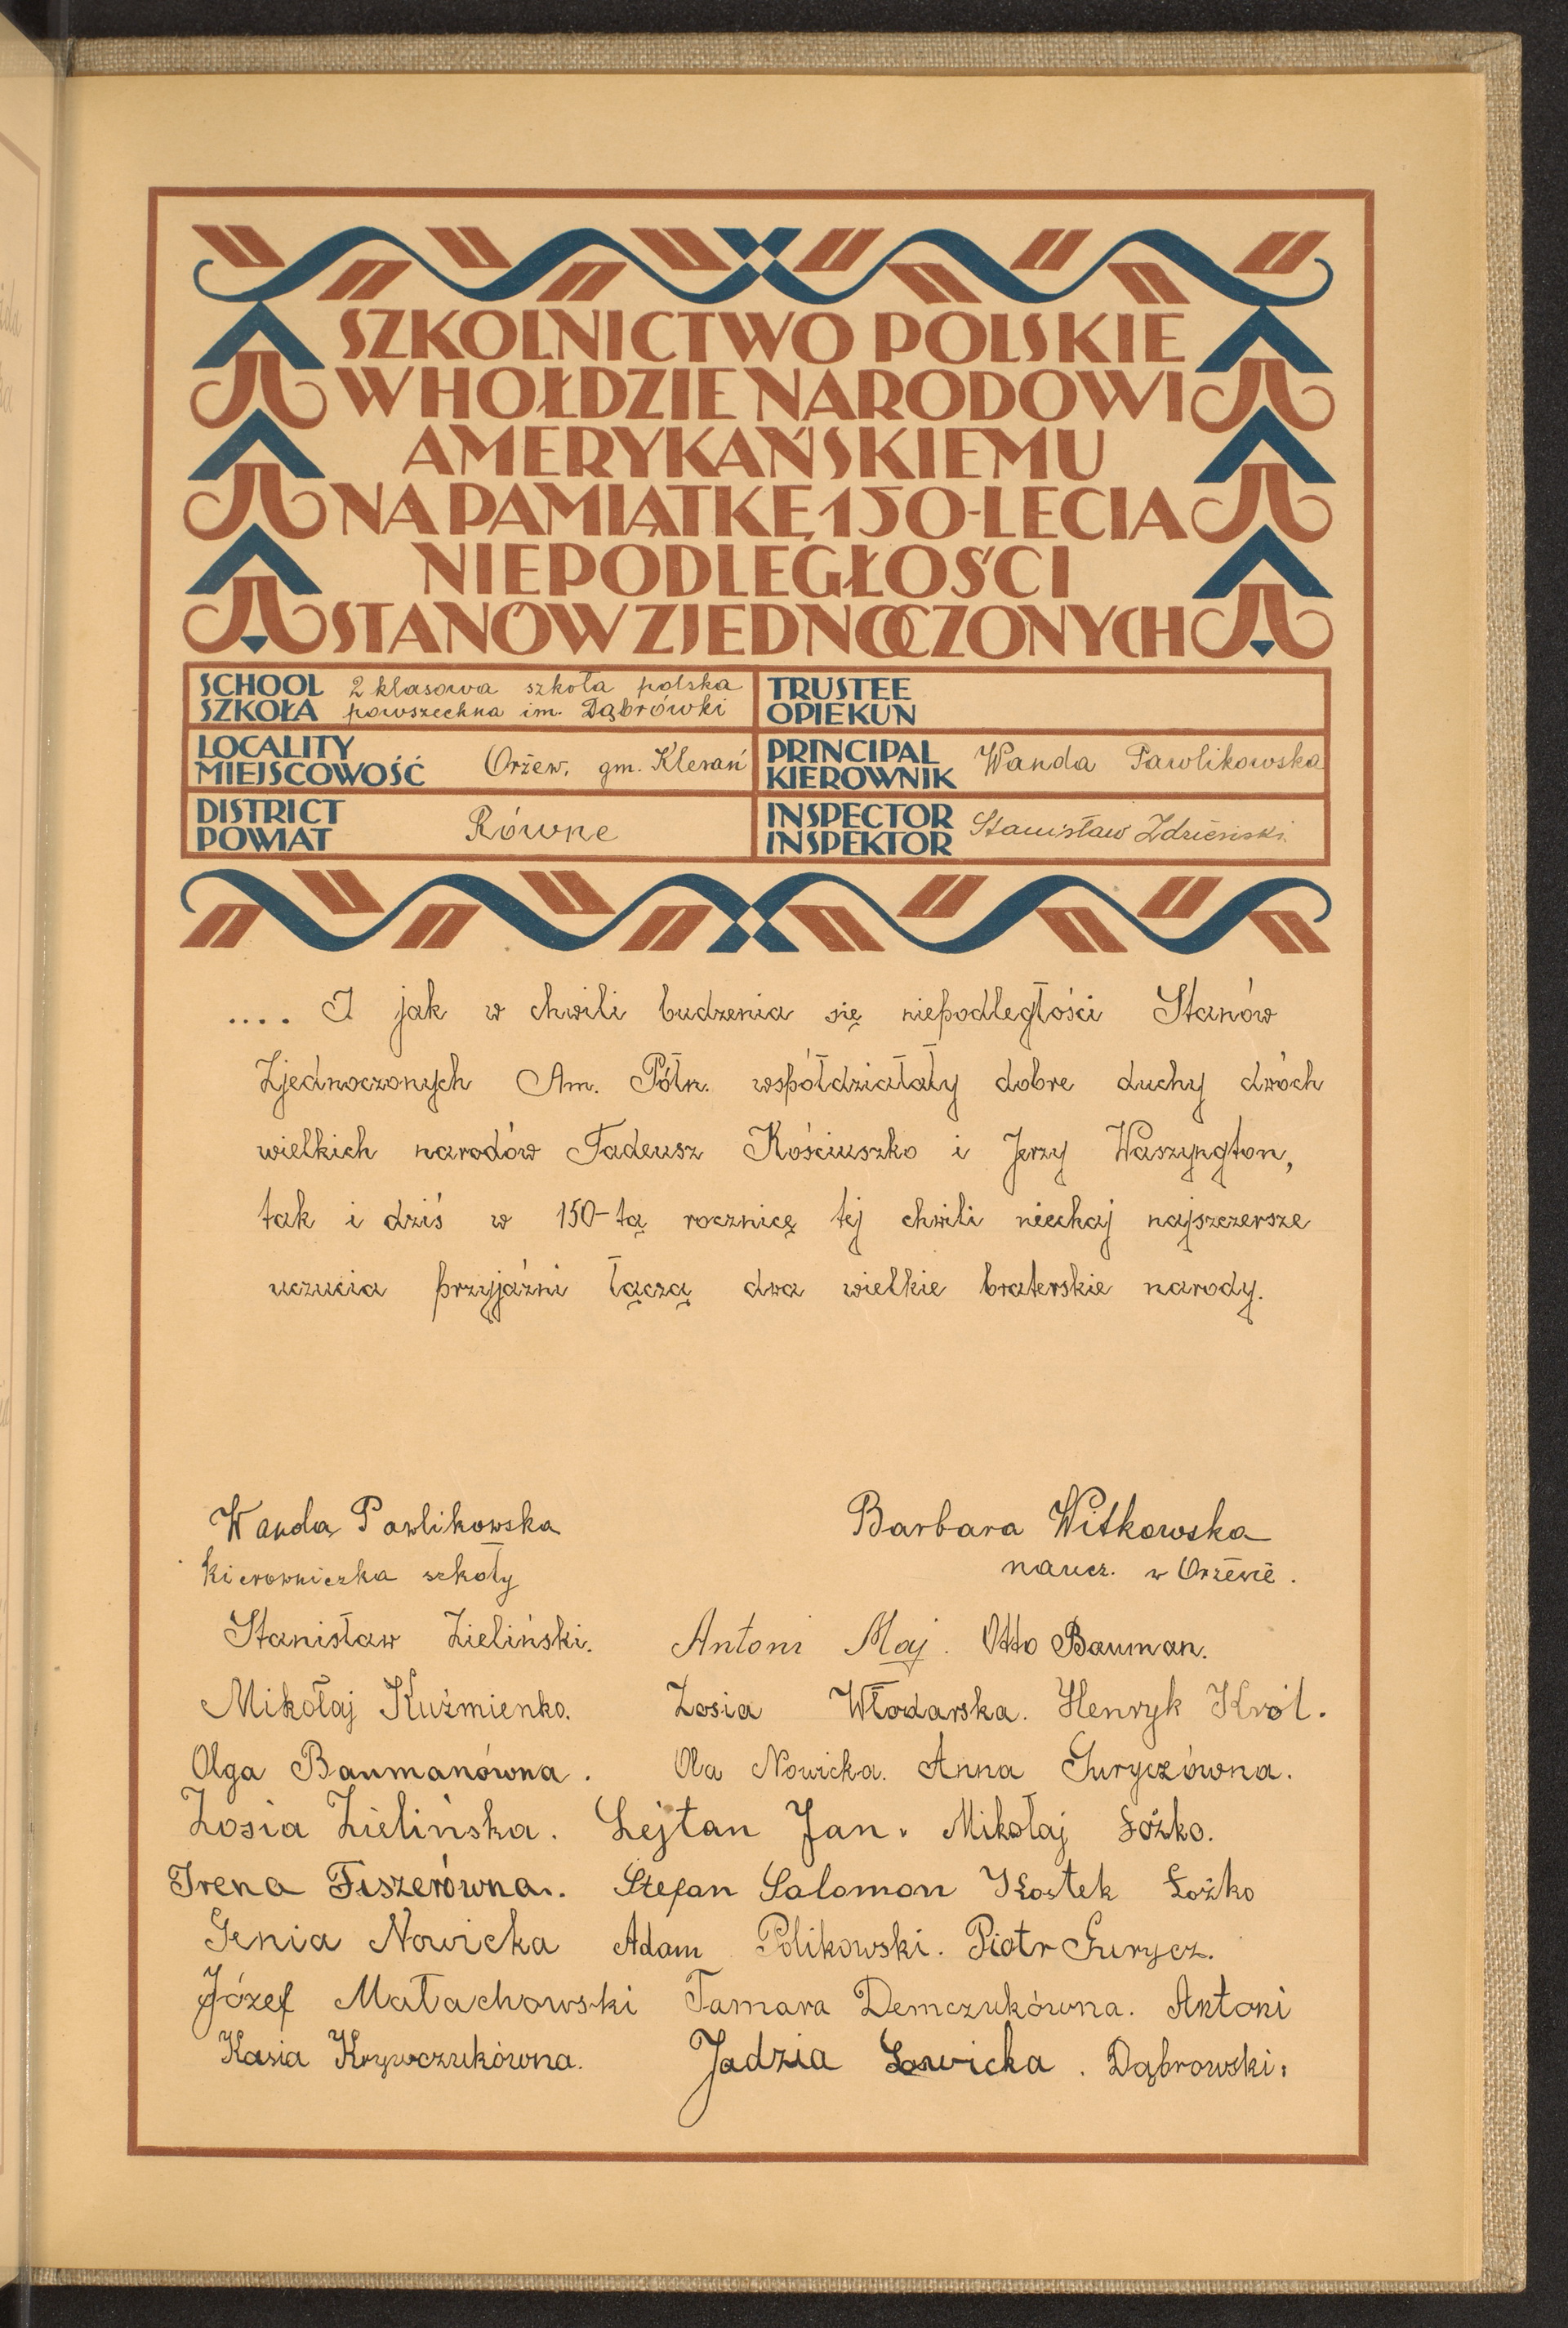 SZKOLNICTWO POLSKIE
W HOŁDZIE NARODOWI
AMERYKAŃSKIEMU
NA PAMIĄTKĘ 150-LECIA
NIEPODLEGŁOŚCI
STANÓW ZJEDNOCZONYCH
SCHOOL
SZKOŁA
2 klasowa szkoła polska
powszechna im. Dąbrówki
TRUSTEE
OPIEKUN
LOCALITY
MIEJSCOWOŚĆ
Orżew, gm. Klewań
PRINCIPAL
KIEROWNIK
Wanda Pawlikowska
DISTRICT
POWIAT
Równe
INSPECTOR
INSPEKTOR
Stanisław
.... I jak w chwili budzenia się niepodległości Stanów
Zjednoczonych Am. Półn. współdziałały dobre duchy dwóch
wielkich narodów Tadeusz Kościuszko i Jerzy Waszyngton,
tak i dziś w 150-tą rocznicę tej chwili niechaj najszczersze
uczucia przyjaźni łączą dwa wielkie braterskie narody.
Wanda Pawlikowska
kierowniczka szkoły
Barbara Witkowska
naucz. w Orżewie.
Stanisław Zieliński. Antoni Maj. Otto Bauman.
Mikołaj Kuźmienko. Zosia Włodarska. Henryk Król.
Olga Baumanówna. Ola Nowicka. Anna Guryczówna.
Zosia Zielińska. Lejtan Jan. Mikołaj Łożko.
Irena Fiszerówna. Stefan Salomon Kostek Łożko
Genia Nowicka Adam Polikowski. Piotr Gurycz.
Józef Małachowski Tamara Demczukówna. Antoni
Kasia Krywczukówna. Jadzia Sawicka. Dąbrowski.